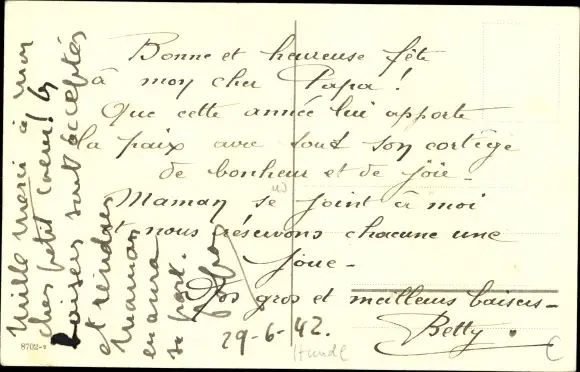 Bonne et heureuse fête
à mon cher Papa !
Que cette année lui apporte
la paix avec tout son cortège
de bonheur et de joie -
Maman se joint à moi
et nous réservons chacune une
joue -
Vos gros et meilleurs baisers -
Betty.
29-6-42.
Mille merci à mon
cher petit coeur ! Les
baisers sont acceptés
et rendus
Maman
en aura
sa part.
Papa
8702-